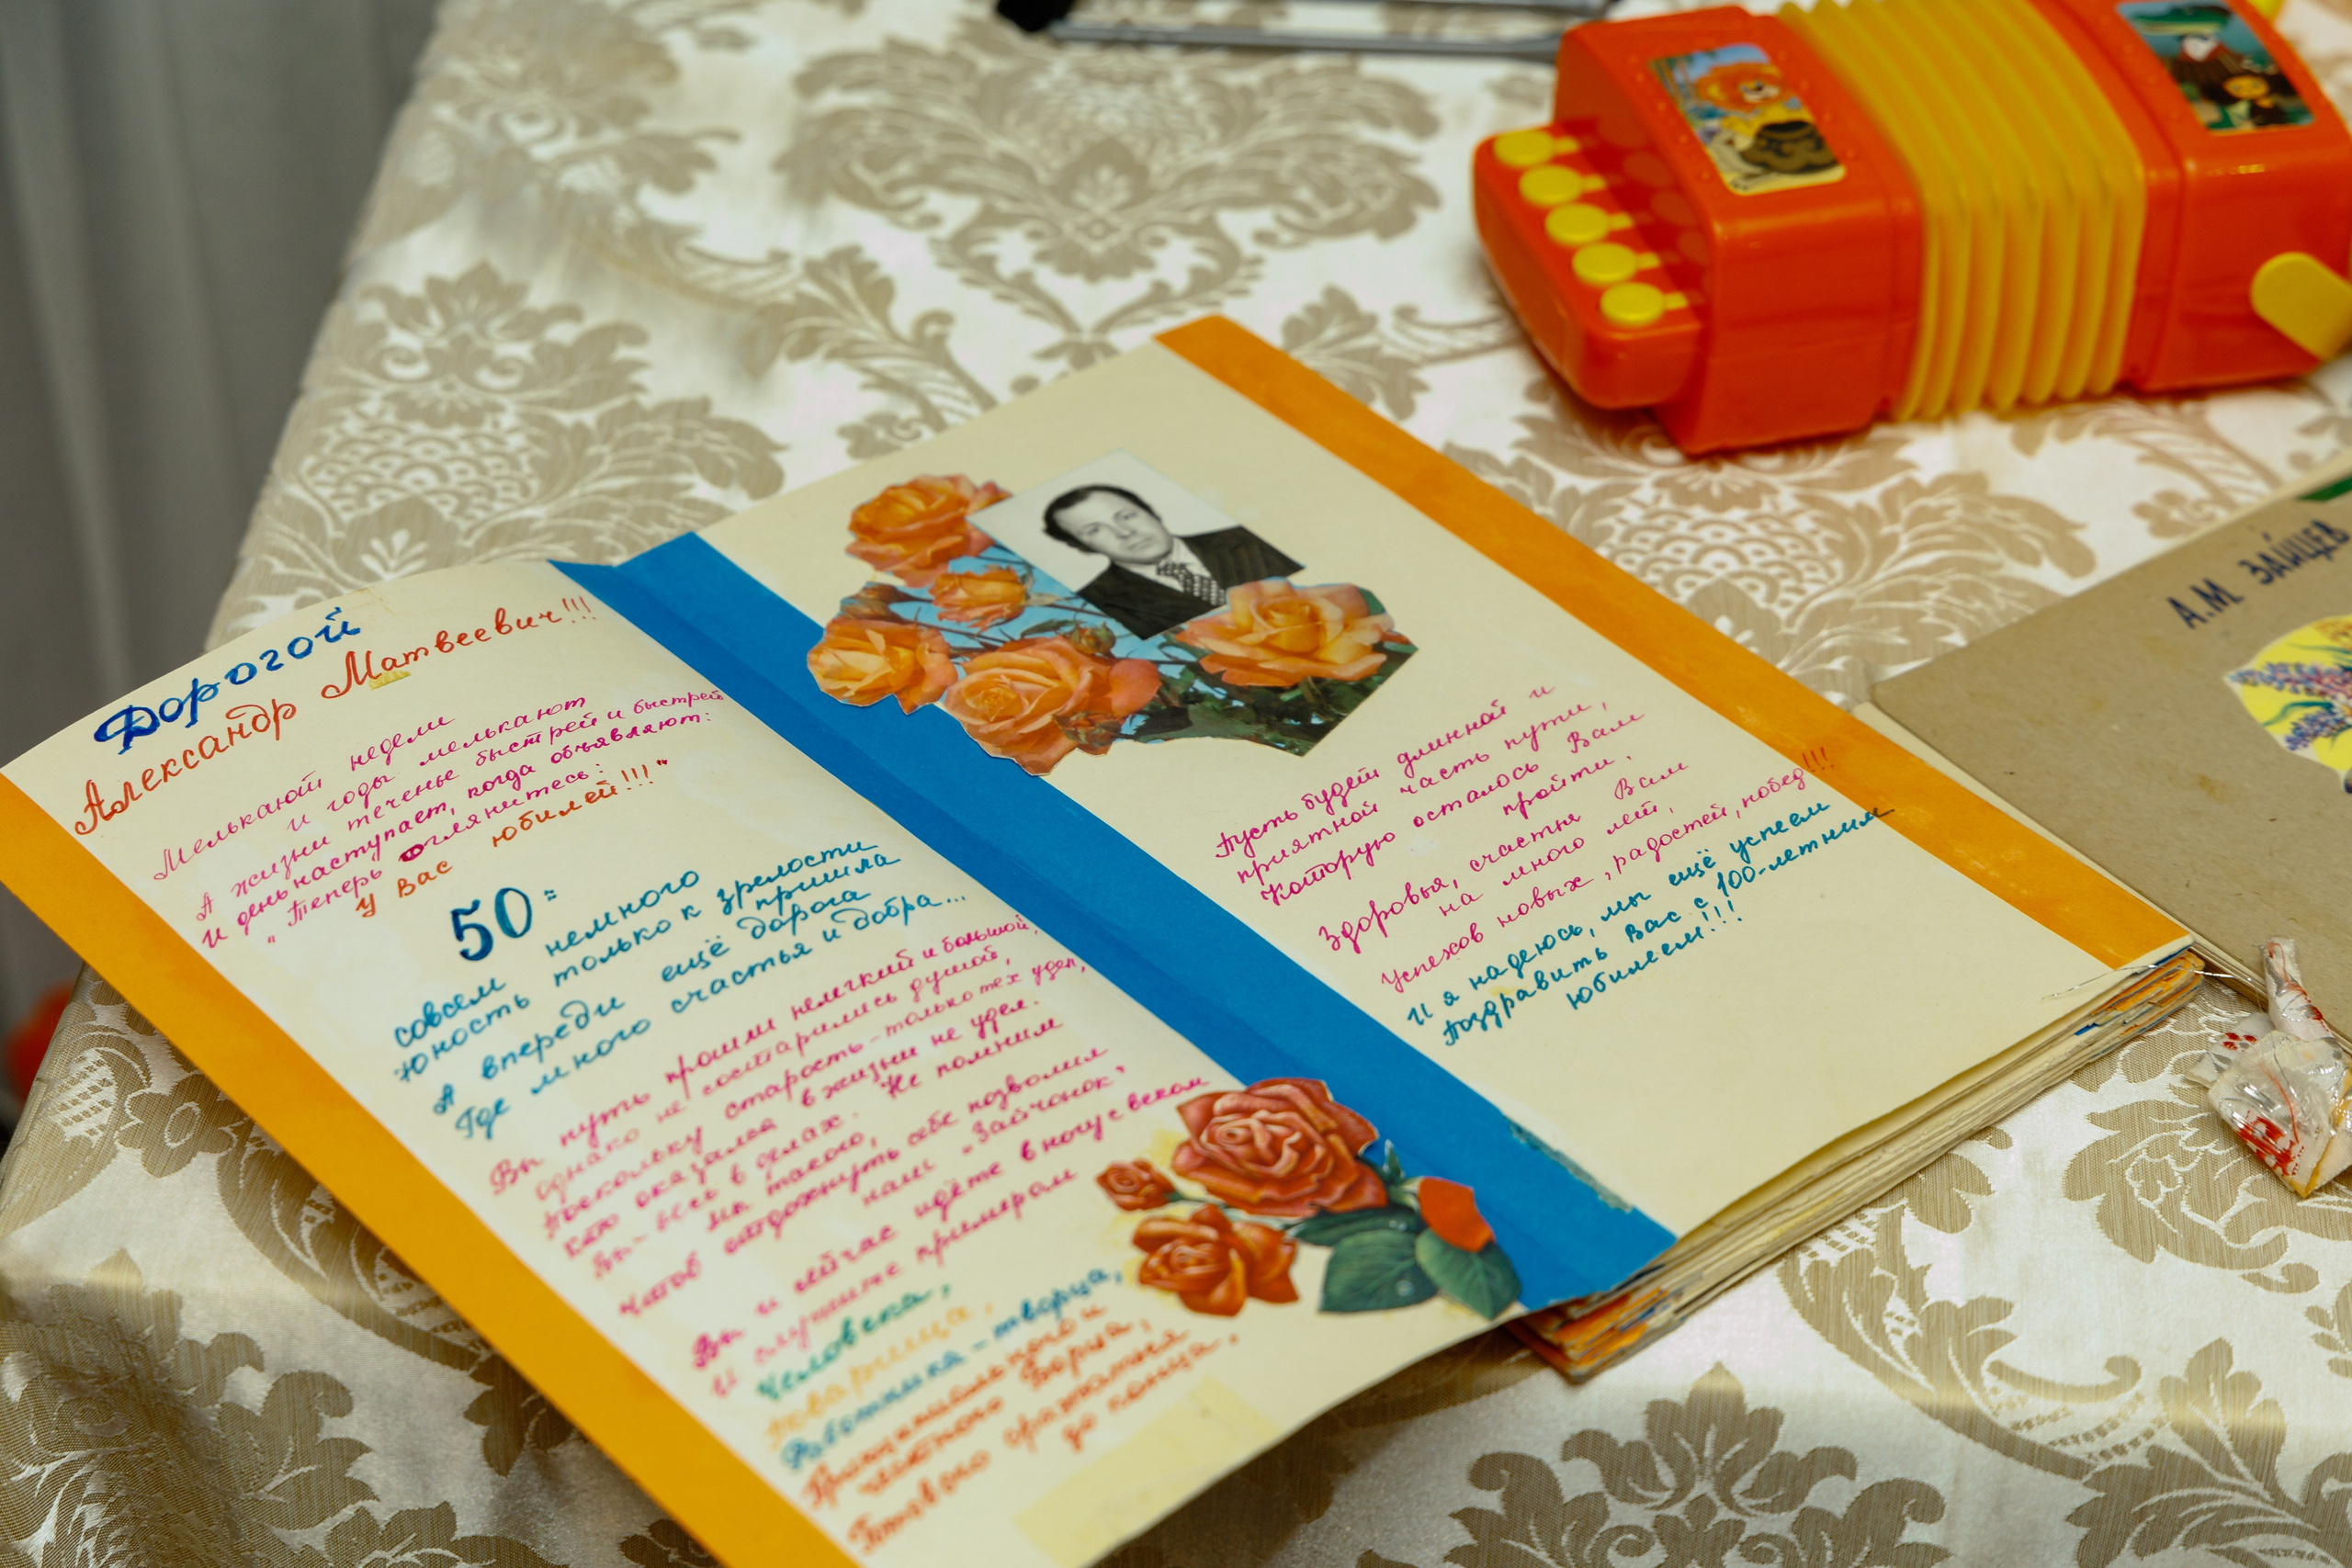 Дорогой
Александр Матвеевич!!!
Мелькают недели
и годы мелькают
А жизни теченье быстрей и быстрей
И день наступает, когда объявляют:
"Теперь оглянитесь:
У Вас юбилей!!!"
50 =
совсем немного
Юность только к зрелости пришла
А впереди ещё дорога
Где много счастья и добра...
Вы путь прошли нелегкий и большой,
однако не состарились душой,
Поскольку старость - только тех удел,
кто оказался в жизни не у дел.
Вы - весь в делах. Не помним
мы такого,
Чтоб отдохнуть себе позволил
наш "Зайчонок"
Вы и сейчас идёте в ногу с веком
И служите примером
Человека,
товарища,
Работника - творца,
Принципиального и
честного борца,
Готового сражаться
до конца.
Пусть будет длинной и
приятной часть пути,
Которую осталось Вам
пройти.
Здоровья, счастья Вам
на много лет,
Успехов новых, радостей, побед!!!
И я надеюсь, мы ещё успеем
Поздравить Вас с 100-летним
юбилеем!!!
А.М. ЗАЙЦЕВ